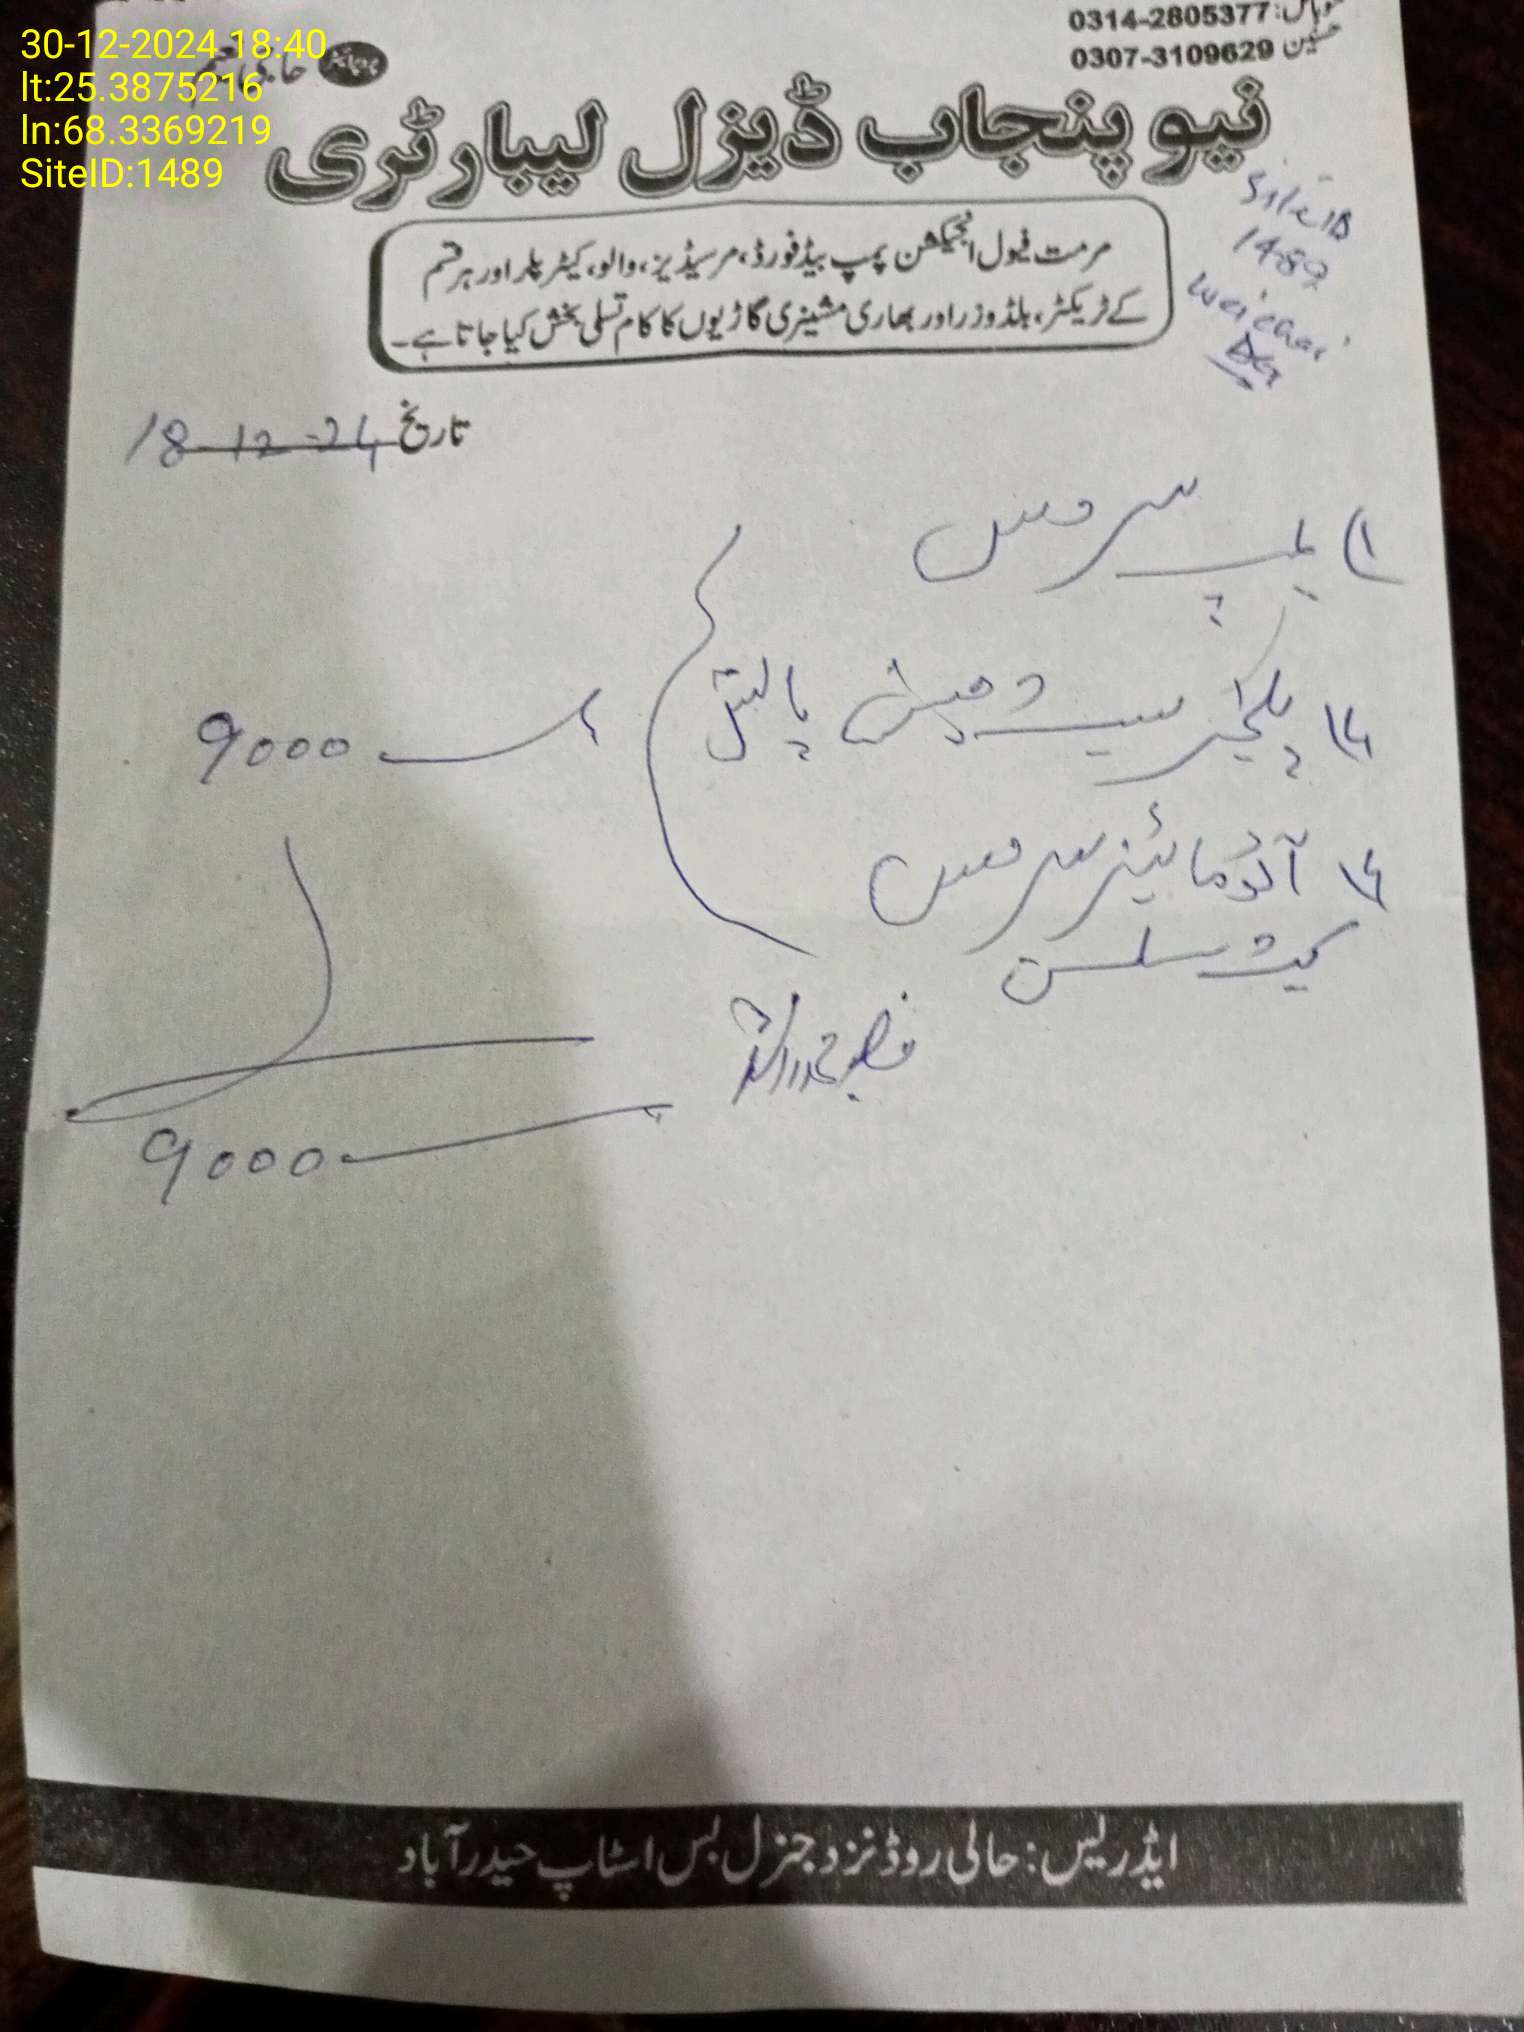 30-12-2024 18:40
lt:25.3875216
ln:68.3369219
SiteID:1489
موبائل: 0314-2805377
حسنین 0307-3109629
پروپرائیٹر حاجی نعیم
نیو پنجاب ڈیزل لیبارٹری
Site ID
1489
weichai
DG
مرمت فیول انجیکشن پمپ بیڈفورڈ، مرسیڈیز، والو، کیٹر پلر اور ہر قسم
کے ٹریکٹر، بلڈوزر اور بھاری مشینری گاڑیوں کا کام تسلی بخش کیا جاتا ہے۔
تاریخ 18-12-24
۱) پمپ سروس
۲) پلنجر سیٹ پالش
9000
۳) آٹومائیزر سروس
9000
ایڈریس: حالی روڈ نزد جنرل بس اسٹاپ حیدرآباد